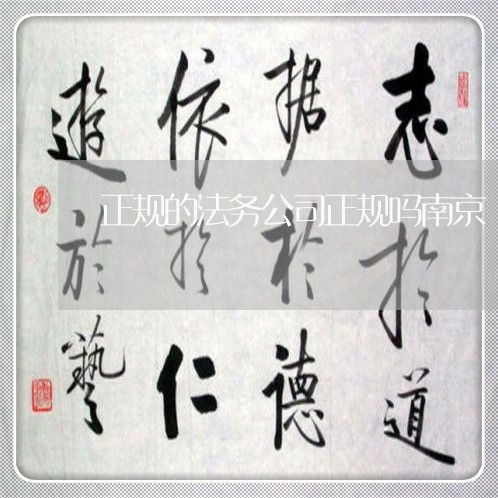 志扵道
据於德
依扵仁
遊於藝
正规的法务公司正规吗南京